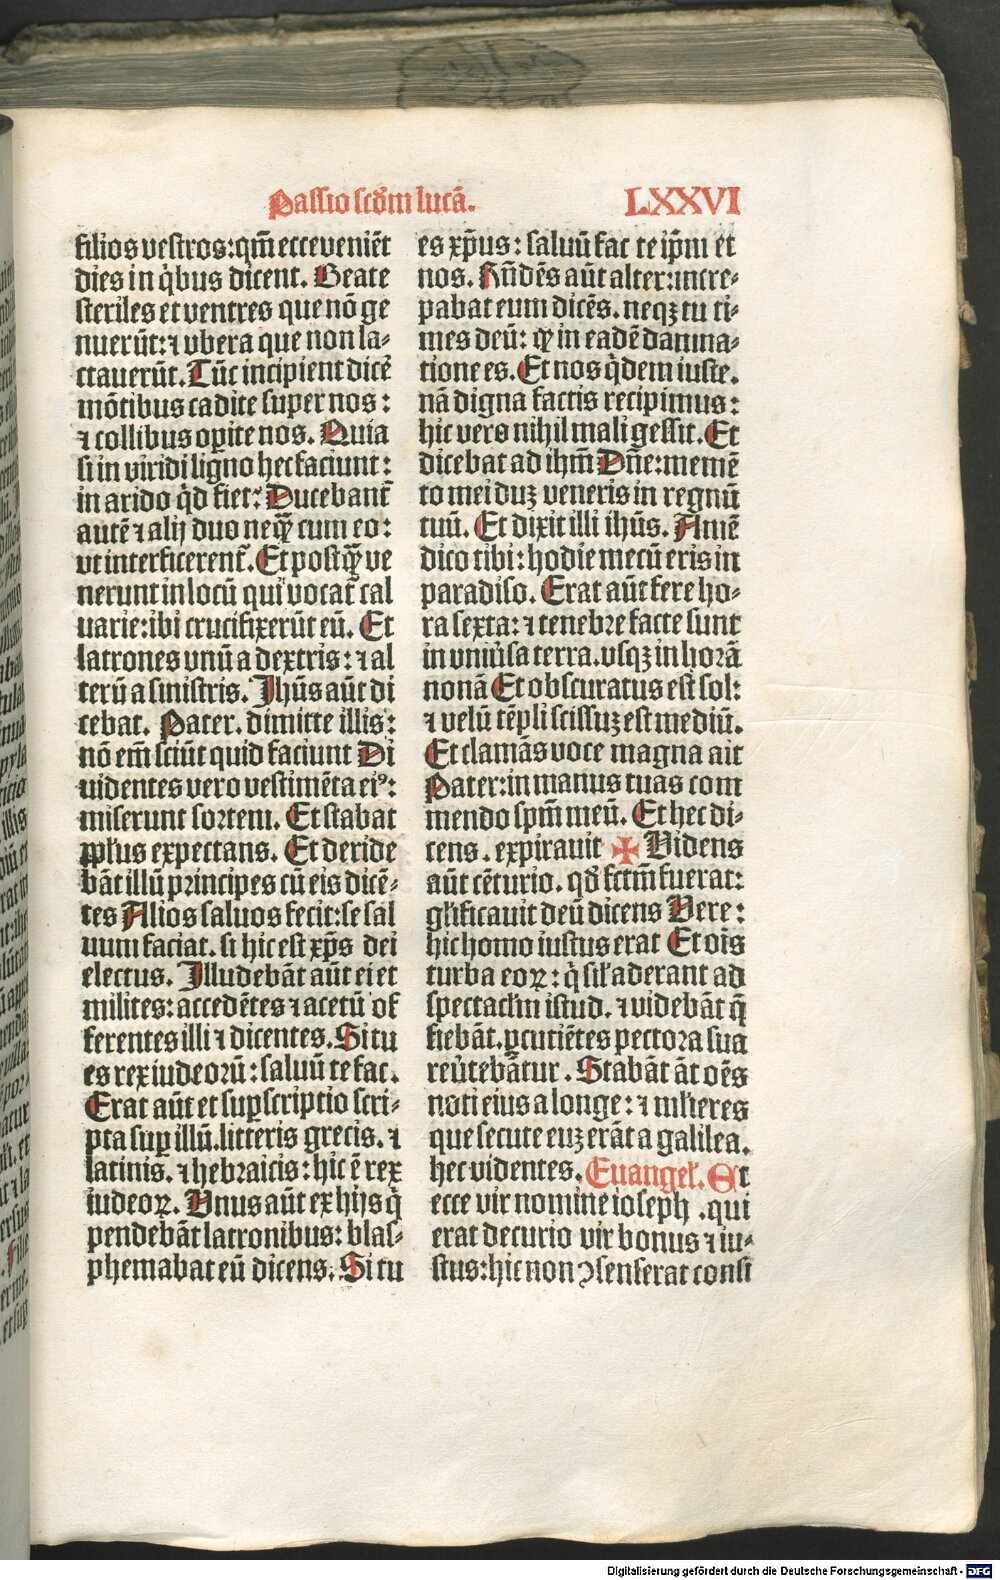 Passio scd̕m lucā.
LXXVI
filios vestros: qm̄ ecce veniēt
dies in q̇bus dicent. Beate
steriles et ventres que nō ge
nuerūt: ⁊ vbera que non la⸗
ctauerūt. Tūc incipient dicē
mōtibus cadite super nos:
⁊ collibus oꝑite nos. Quia
si in viridi ligno hec faciunt:
in arido q̇d fiet: Ducebant᷑
autē ⁊ alij duo neqꝗ̄ cum eo:
vt interficerent᷑. Et postꝗ̄ ve
nerunt in locū qui vocat᷑ cal
varie: ibi crucifixerūt eū. Et
latrones vnū a dextris: ⁊ al
terū a sinistris. Jhūs aūt di
cebat. Pater. dimitte illis:
nō em̄ sciūt quid faciunt Di
uidentes vero vestimēta eiꝰ:
miserunt sortem. Et stabat
pplus expectans. Et deride
bāt illū principes cū eis dicē⸗
tes Alios saluos fecit: se sal
uum faciat. si hic est xp̄s dei
electus. Jlludebāt aūt ei et
milites: accedētes ⁊ acetū of
ferentes illi ⁊ dicentes. Si tu
es rex iudeorū: saluū te fac.
Erat aūt et suꝑscriptio scri⸗
pta suꝑ illū. litteris grecis. ⁊
latinis. ⁊ hebraicis: hic ē rex
iudeoꝝ. Vnus aūt ex hijs q̇
pendebāt latronibus: blas⸗
phemabat eū dicens. Si tu
es xp̄us: saluū fac te ip̄m et
nos. Rn̄dēs aūt alter: incre⸗
pabat eum dicēs. neqꝫ tu ti⸗
mes deū: ꝙ in eadē damna⸗
tione es. Et nos q̇dem iuste.
nā digna factis recipimus:
hic vero nihil mali gessit. Et
dicebat ad ihm̄ Dn̄e: memē
to mei duꝫ veneris in regnū
tuū. Et dixit illi ihūs. Amē
dico tibi: hodie mecū eris in
paradiso. Erat aūt fere ho⸗
ra sexta: ⁊ tenebre facte sunt
in vniūsa terra. vsqꝫ in horā
nonā Et obscuratus est sol:
⁊ velū tēpli scissuꝫ est mediū.
Et clamās voce magna ait
Pater: in manus tuas com
mendo spm̄ meū. Et hec di⸗
cens. expirauit ✠ Videns
aūt cēturio. qd̕ fctm̄ fuerat:
gl̕ificauit deū dicens Vere:
hic homo iustus erat Et oīs
turba eoꝝ: q̇ sil̕ aderant ad
spectacl̕m istud. ⁊ videbāt q̄
fiebāt. ꝑcutiētes pectora sua
reūtebātur. Stabāt āt oēs
noti eius a longe: ⁊ ml̕ieres
que secute euꝫ erāt a galilea.
hec videntes. Euangel̕. Et
ecce vir nomine ioseph. qui
erat decurio vir bonus ⁊ iu⸗
stus: hic non ꝯsenserat consi
Digitalisierung gefördert durch die Deutsche Forschungsgemeinschaft - DFG